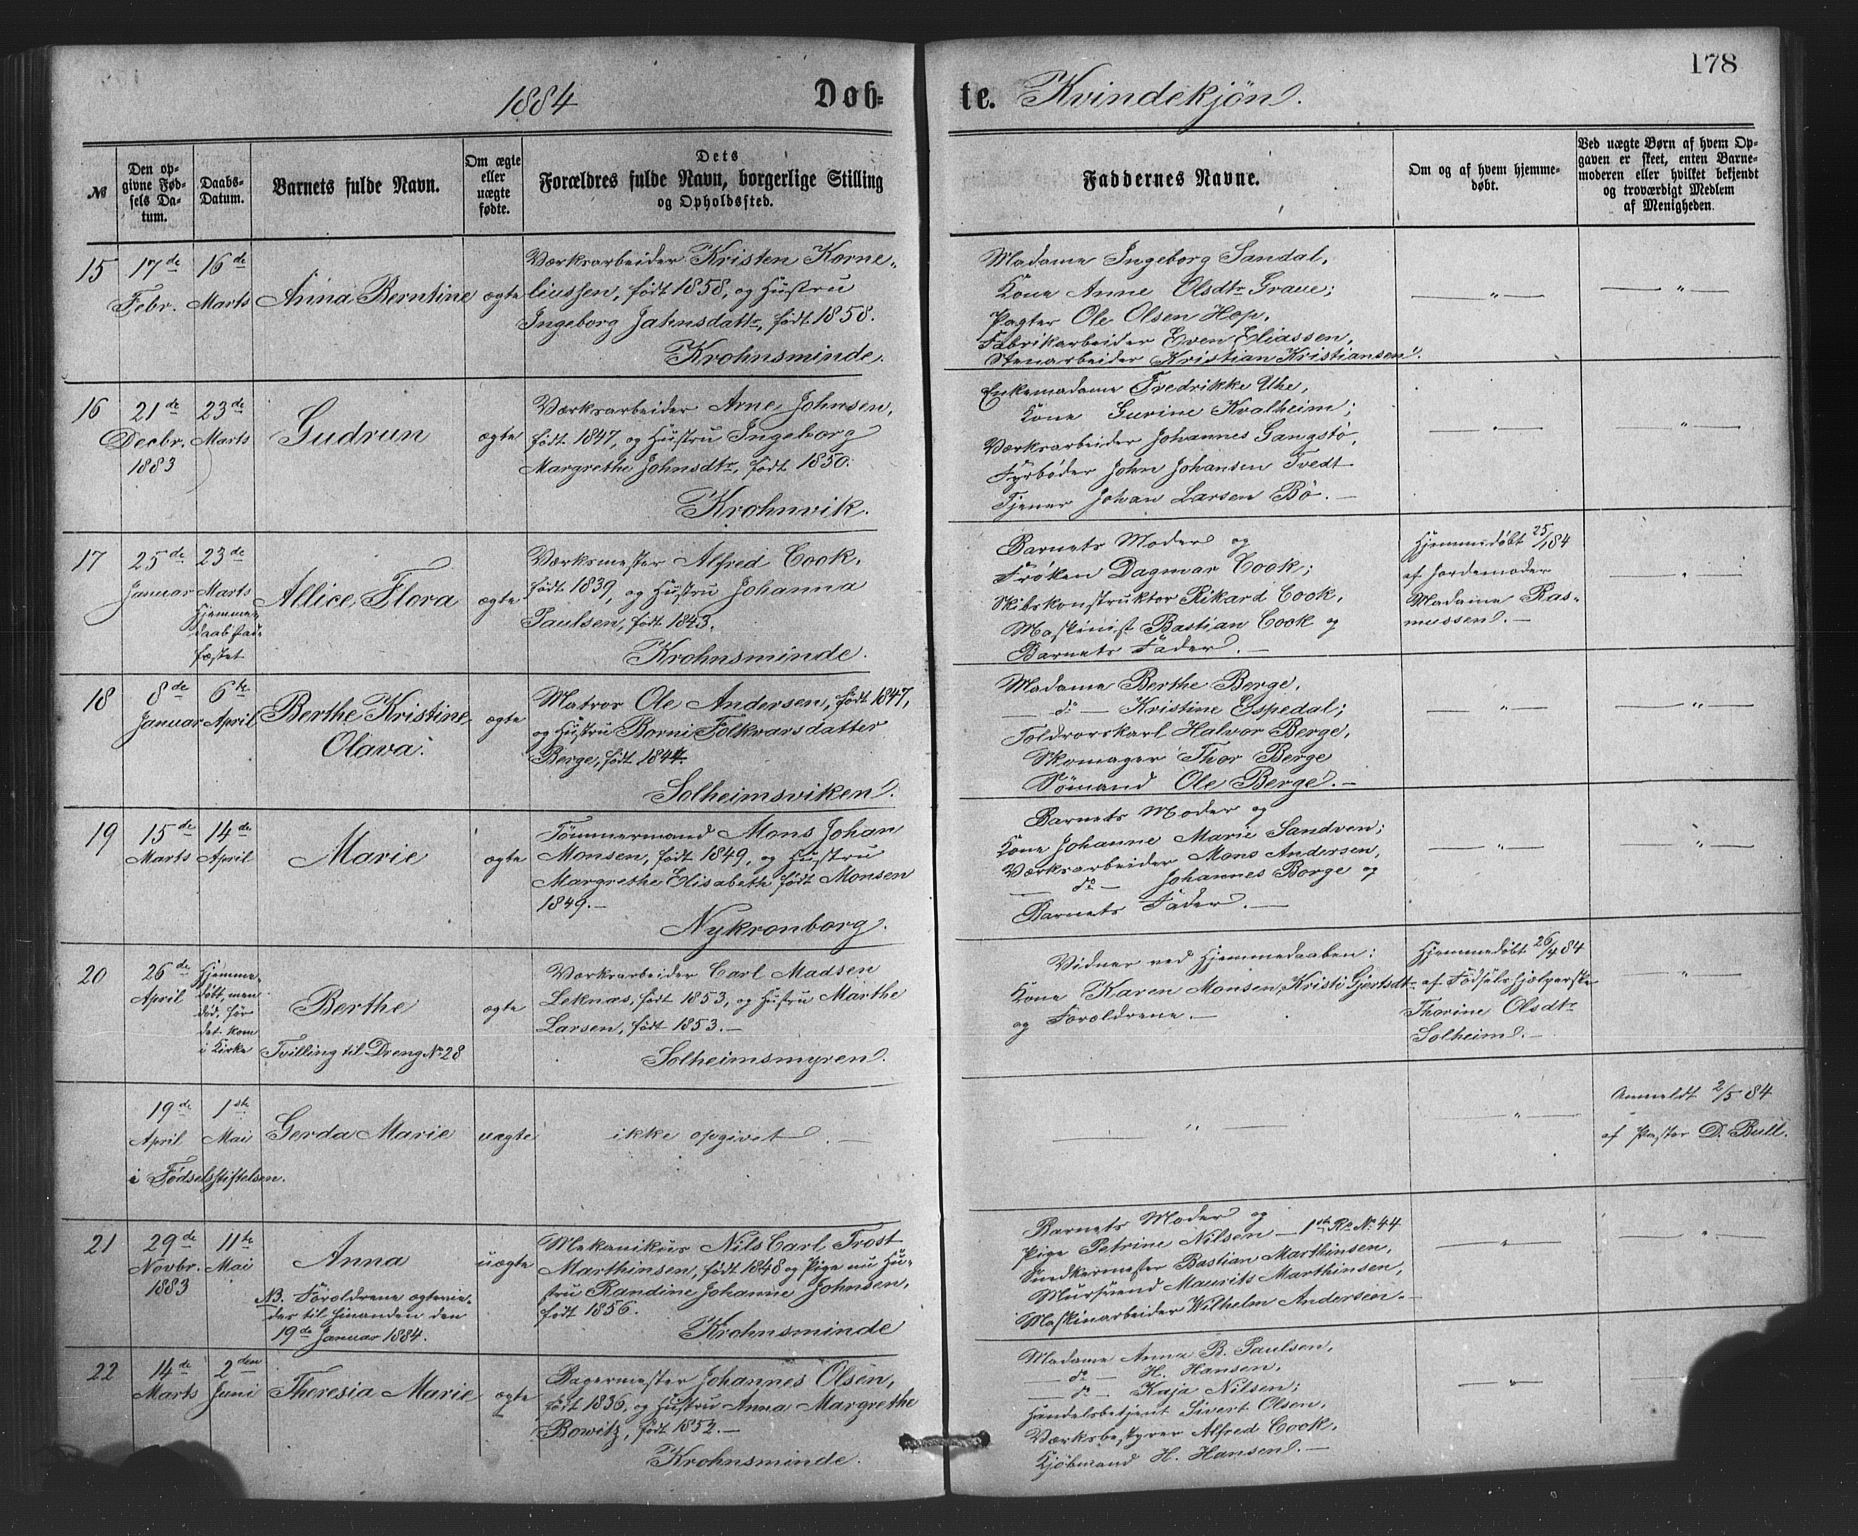 178
1884 Døb-
te. Kvindekjøn.
№
Den op-
givne Fød-
sels Da-
tum.
Daabs-
Datum.
Barnets fulde Navn.
Om ægte
eller
uægte
fødte.
Dets
Forældres fulde Navn, borgerlige Stilling
og Opholdssted.
Faddernes Navne.
Om og af hvem hjemme-
døbt.
Ved uægte Børn af hvem Op-
gaven er skeet, enten Barne-
moderen eller hvilket bekjendt
og troværdigt Medlem
af Menigheden.
15
17de
Febr.
16de
Marts
Anna Berntine
ægte
Værksarbeider Kristen Korne-
liussen, født 1858, og Hustru
Ingeborg Jahnsdattr, født 1858.
Krohnsminde.
Madame Ingeborg Sandal,
Kone Anne Olsdtr Graue;
Pagter Ole Olsen Hop,
Fabrikarbeider Even Eliassen,
Stenarbeider Kristian Kristiansen.
— " —
— " —
16
21de
Decbr.
1883
23de
Marts
Gudrun
ægte
Værksarbeider Arne Johnsen,
født 1847, og Hustru Ingeborg
Margrethe Johnsdtr, født 1850.
Krohnvik.
Enkemadame Fredrikke Uhe,
Kone Gurine Kvalheim;
Værksarbeider Johannes Gangstø,
Fyrbøder John Johansen Tvedt
Tjener Johan Larsen Bø. —
— " —
— " —
17
25de
Januar
23de
Marts
Hjemme-
daab stad-
fæstet
Allice Flora
ægte
Værksmester Alfred Cook,
født 1839, og Hustru Johanna
Paulsen, født 1843.
Krohnsminde.
Barnets Moder og
Frøken Dagmar Cook;
Skibskonstruktør Rikard Cook,
Maskinist Bastian Cook og
Barnets Fader. —
Hjemmedøbt 25/1 84
af Jordemoder
Madame Ras-
mussen. —
— " —
18
8de
Januar
6te
April
Berthe Kristine
Olava.
ægte
Matros Ole Andersen, født 1847,
og Hustru Borni Folkvarsdatter
Berge, født 1844
Solheimsviken.
Madame Berthe Berge,
— do — Kristine Espedal;
Toldrorskarl Halvor Berge,
Skomager Thor Berge
Sømand Ole Berge. —
— " —
— " —
19
15de
Marts
14de
April
Marie
ægte
Tømmermand Mons Johan
Monsen, født 1849, og Hustru
Margrethe Elisabeth født Monsen
1849. —
Nykronborg.
Barnets Moder og
Kone Johanne Marie Sandven;
Værksarbeider Mons Andersen,
— do — Johannes Borge og
Barnets Fader. —
— " —
— " —
20
26de
April
Hjemme-
døbt, men
død, før
det kom
i Kirke
Berthe
Tvilling til Dreng No 28
ægte
Værksarbeider Carl Madsen
Leknæs, født 1853, og Hustru Marthe
Larsen, født 1853. —
Solheimsmyren.
Vidner ved Hjemmedaaben:
Kone Karen Monsen, Kristi Gjertsdtr
og Forældrene. —
Hjemmedøbt 26/4 84
af Fødselshjælperske
Thorine Olsdtr
Solheim. —
— " —
19de
April
1ste
Mai
i Fødselsstiftelsen.
Gerda Marie
uægte
ikke opgivet. —
— " —
— " —
Anmeldt 2/5 84
af Pastor D. Bull.
21
29de
Novbr.
1883
11te
Mai
Anna
NB. Forældrene ægtevie-
des til hinanden den
19de Januar 1884.
uægte
Mekanikus Nils Carl Trost
Marthinsen, født 1848 og Pige nu Hu-
stru Randine Johanne Johnsen,
født 1856.
Krohnsminde
Barnets Moder og
Pige Petrine Nilsen — 1ste Ro No 44
Snedkermester Bastian Marthinsen,
Mursvend Maurits Marthinsen,
Maskinarbeider Wilhelm Andersen. —
— " —
"
22
14de
Marts
2den
Juni
Theresia Marie
ægte
Bagermester Johannes Olsen,
født 1836, og Hustru Anna Margrethe
Bowitz, født 1852. —
Krohnsminde.
Madame Anna B. Paulsen,
— do — H. Hansen,
— do — Kaja Nilsen;
Handelsbetjent Sivert Olsen,
Værksbestyrer Alfred Cook,
Kjøbmand H. Hansen. —
— " —